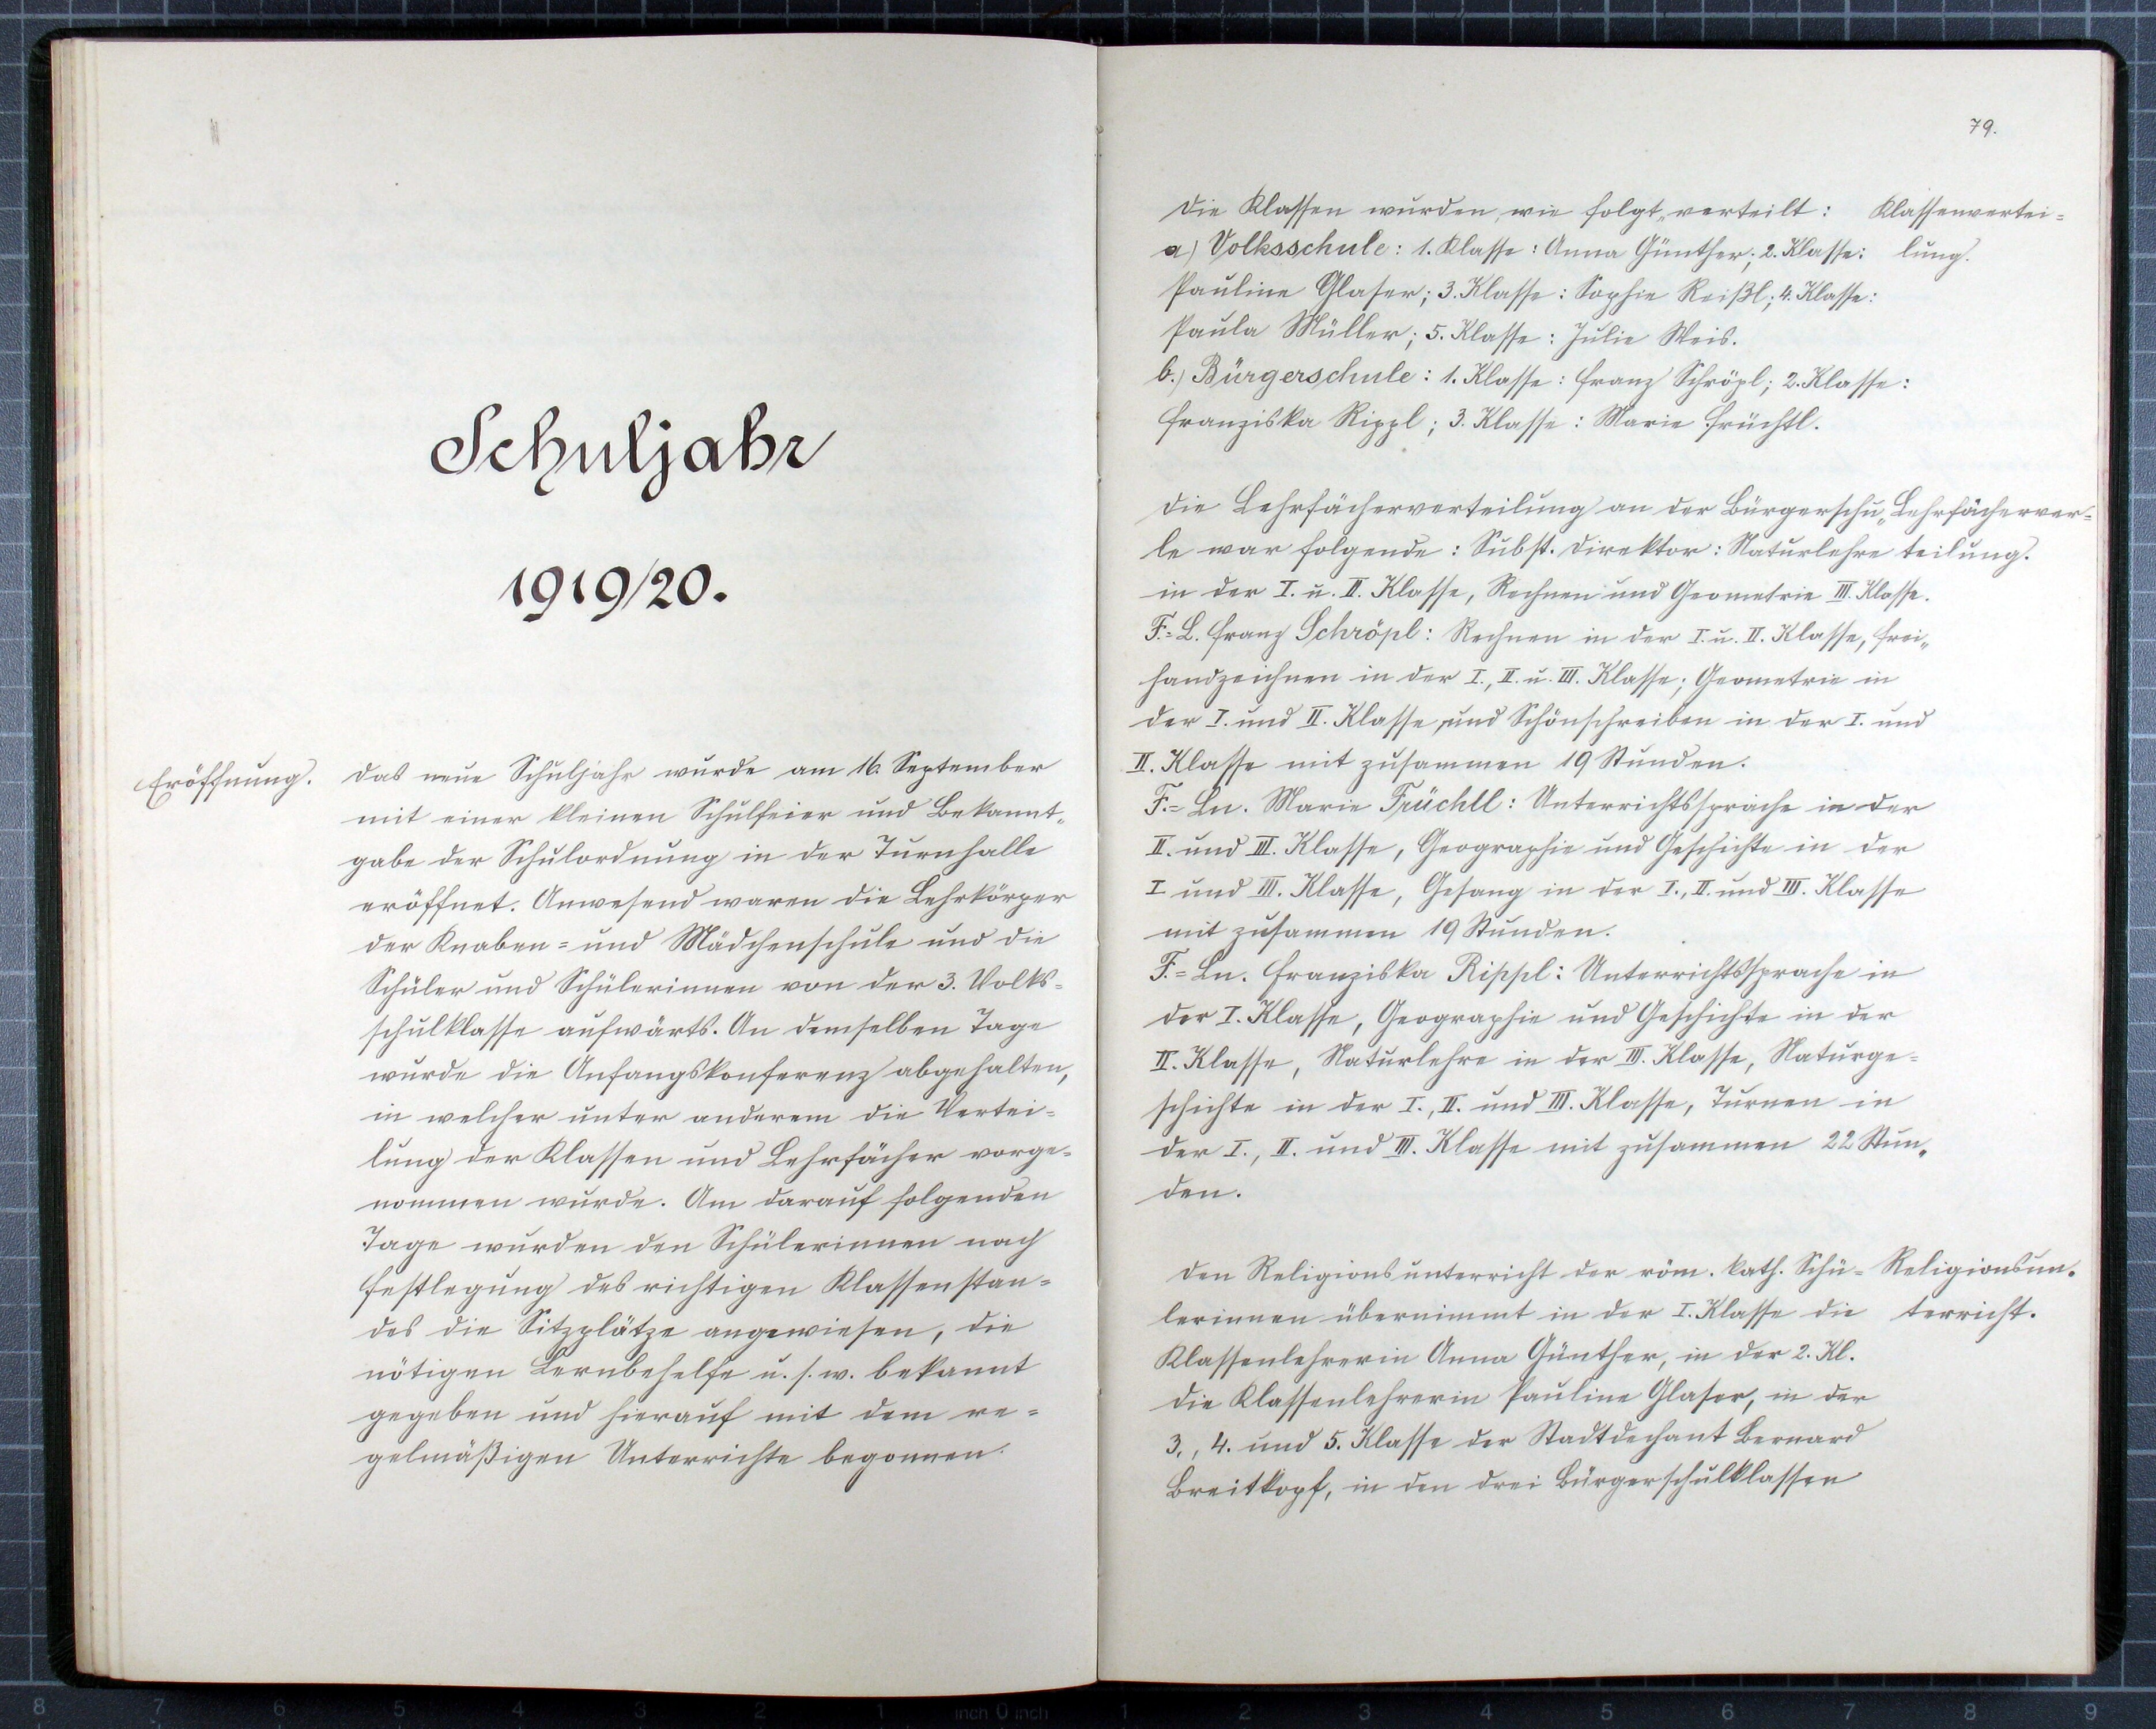 Schuljahr
1919/20.
Eröffnung.
Das neue Schuljahr wurde am 16. September
mit einer kleinen Schulfeier und Bekannt-
gabe der Schulordnung in der Turnhalle
eröffnet. Anwesend waren die Lehrkörper
der Knaben= und Mädchenschule und die
Schüler und Schülerinnen von der 3. Volks-
schulklasse aufwärts. An demselben Tage
wurde die Anfangskonferenz abgehalten,
in welcher unter anderem die Vertei=
lung der Klassen und Lehrfächer vorge=
nommen wurde. Am darauf folgenden
Tage wurden den Schülerinnen nach
Festlegung des richtigen Klassenstan=
des die Sitzplätze angewiesen, die
nötigen Lernbehelfe u. s. w. bekannt
gegeben und hierauf mit dem re=
gelmäßigen Unterrichte begonnen.
79.
Die Klassen wurden, wie folgt, verteilt:
a) Volksschule: 1. Klasse: Anna Günther; 2. Klasse:
Pauline Glaser; 3. Klasse: Sophie Reißl; 4. Klasse:
Paula Müller; 5. Klasse: Julie Weis.
b.) Bürgerschule: 1. Klasse: Franz Schröpl; 2. Klasse:
Franziska Rippl; 3. Klasse: Marie Früchtl.
Klassenvertei=
lung.
Die Lehrfächerverteilung an der Bürgerschu„
le war folgende: Subst. Direktor: Naturlehre
in der I. u. II. Klasse, Rechnen und Geometrie III. Klasse.
F.=L. Franz Schröpl: Rechnen in der I. u. II. Klasse, Frei„
handzeichnen in der I., II. u. III. Klasse; Geometrie in
der I. und II. Klasse, und Schönschreiben in der I. und
II. Klasse mit zusammen 19 Stunden.
F.=Ln. Marie Früchtl: Unterrichtssprache in der
II. und III. Klasse, Geographie und Geschichte in der
I und III. Klasse, Gesang in der I., II. und III. Klasse
mit zusammen 19 Stunden.
F.=Ln. Franziska Rippl: Unterrichtssprache in
der I. Klasse, Geographie und Geschichte in der
II. Klasse, Naturlehre in der III. Klasse, Naturge=
schichte in der I., II. und III. Klasse, Turnen in
der I., II. und III. Klasse mit zusammen 22 Stun„
den.
Lehrfächerver=
teilung.
Den Religionsunterricht der röm. kath. Schü=
lerinnen übernimmt in der I. Klasse die
Klassenlehrerin Anna Günther, in der 2. Kl.
die Klassenlehrerin Pauline Glaser, in der
3., 4. und 5. Klasse der Stadtdechant Bernard
Breitkopf, in den drei Bürgerschulklassen
Religionsun=
terricht.
8 7 6 5 4 3 2 1 inch 0 inch 1 2 3 4 5 6 7 8 9